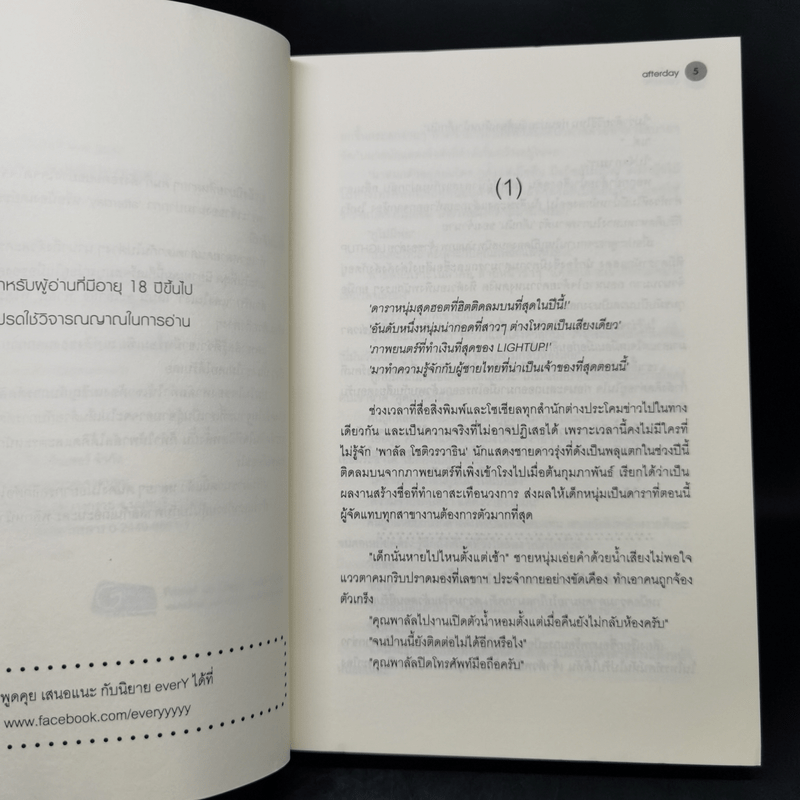 หรับผู้อ่านที่มีอายุ 18 ปีขึ้นไป
ปรดใช้วิจารณญาณในการอ่าน
พูดคุย เสนอแนะ กับนิยาย everY ได้ที่
www.facebook.com/everyyyyy
afterday 5
(1)
'ดาราหนุ่มสุดฮอตที่ฮิตติดลมบนที่สุดในปีนี้!'
'อันดับหนึ่งหนุ่มน่ากอดที่สาวๆ ต่างโหวตเป็นเสียงเดียว'
'ภาพยนตร์ที่ทำเงินที่สุดของ LIGHTUP!'
'มาทำความรู้จักกับผู้ชายไทยที่น่าเป็นเจ้าของที่สุดตอนนี้'
ช่วงเวลาที่สื่อสิ่งพิมพ์และโซเชียลทุกสำนักต่างประโคมข่าวไปในทาง
เดียวกัน และเป็นความจริงที่ไม่อาจปฏิเสธได้ เพราะเวลานี้คงไม่มีใครที่
ไม่รู้จัก 'พาลัล โชติวรวาธิน' นักแสดงชายดาวรุ่งที่ดังเป็นพลุแตกในช่วงปีนี้
ติดลมบนจากภาพยนตร์ที่เพิ่งเข้าโรงไปเมื่อต้นกุมภาพันธ์ เรียกได้ว่าเป็น
ผลงานสร้างชื่อที่ทำเอาสะเทือนวงการ ส่งผลให้เด็กหนุ่มเป็นดาราที่ตอนนี้
ผู้จัดแทบทุกสาขางานต้องการตัวมากที่สุด
"เด็กนั่นหายไปไหนตั้งแต่เช้า" ชายหนุ่มเอ่ยคำด้วยน้ำเสียงไม่พอใจ
แววตาคมกริบปราดมองที่เลขาฯ ประจำกายอย่างขัดเคือง ทำเอาคนถูกจ้อง
ตัวเกร็ง
"คุณพาลัลไปงานเปิดตัวน้ำหอมตั้งแต่เมื่อคืนยังไม่กลับห้องครับ"
"จนป่านนี้ยังติดต่อไม่ได้อีกหรือไง"
"คุณพาลัลปิดโทรศัพท์มือถือครับ"